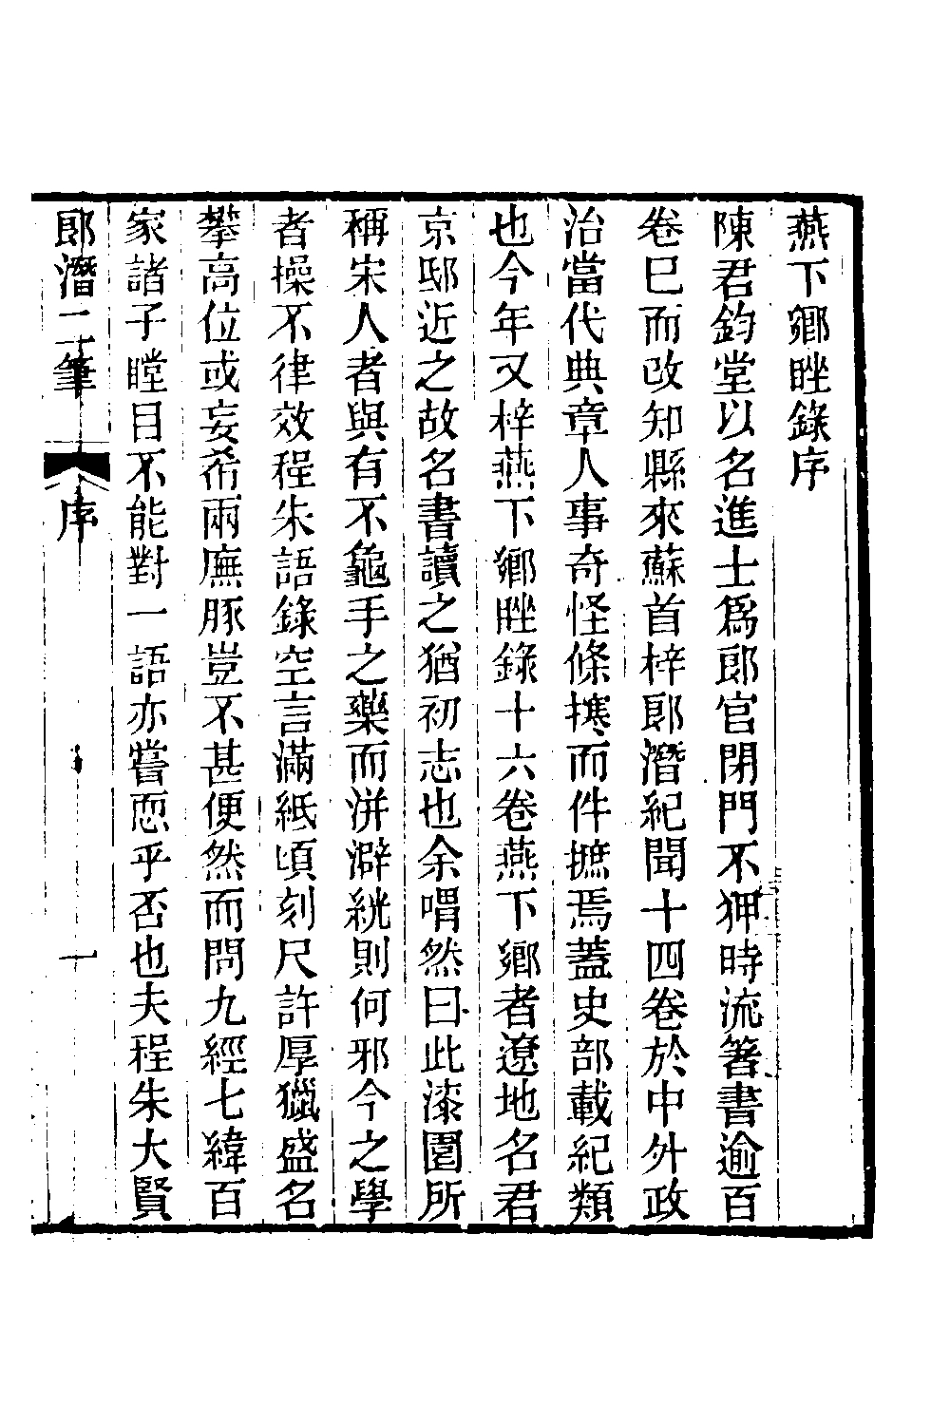 燕下鄉脞錄序
陳君鈞堂以名進士爲郎官閉門不狎時流箸書逾百
卷巳而改知縣來蘇首梓郞潛紀聞十四卷於中外政
治當代典章人事奇怪條攓而件摭焉蓋史部載紀類
也今年又梓燕下鄉脞錄十六卷燕下鄉者遼地名君
京邸近之故名書讀之猶初志也余喟然曰此漆園所
稱宋人者與有不龜手之藥而洴澼絖則何邪今之學
者操不律效程朱語錄空言滿紙頃刻尺許厚獵盛名
攀高位或妄希兩廡豚豈不甚便然而問九經七緯百
家諸子瞠目不能對一語亦嘗恧乎否也夫程朱大賢
郞潛二筆 序 一